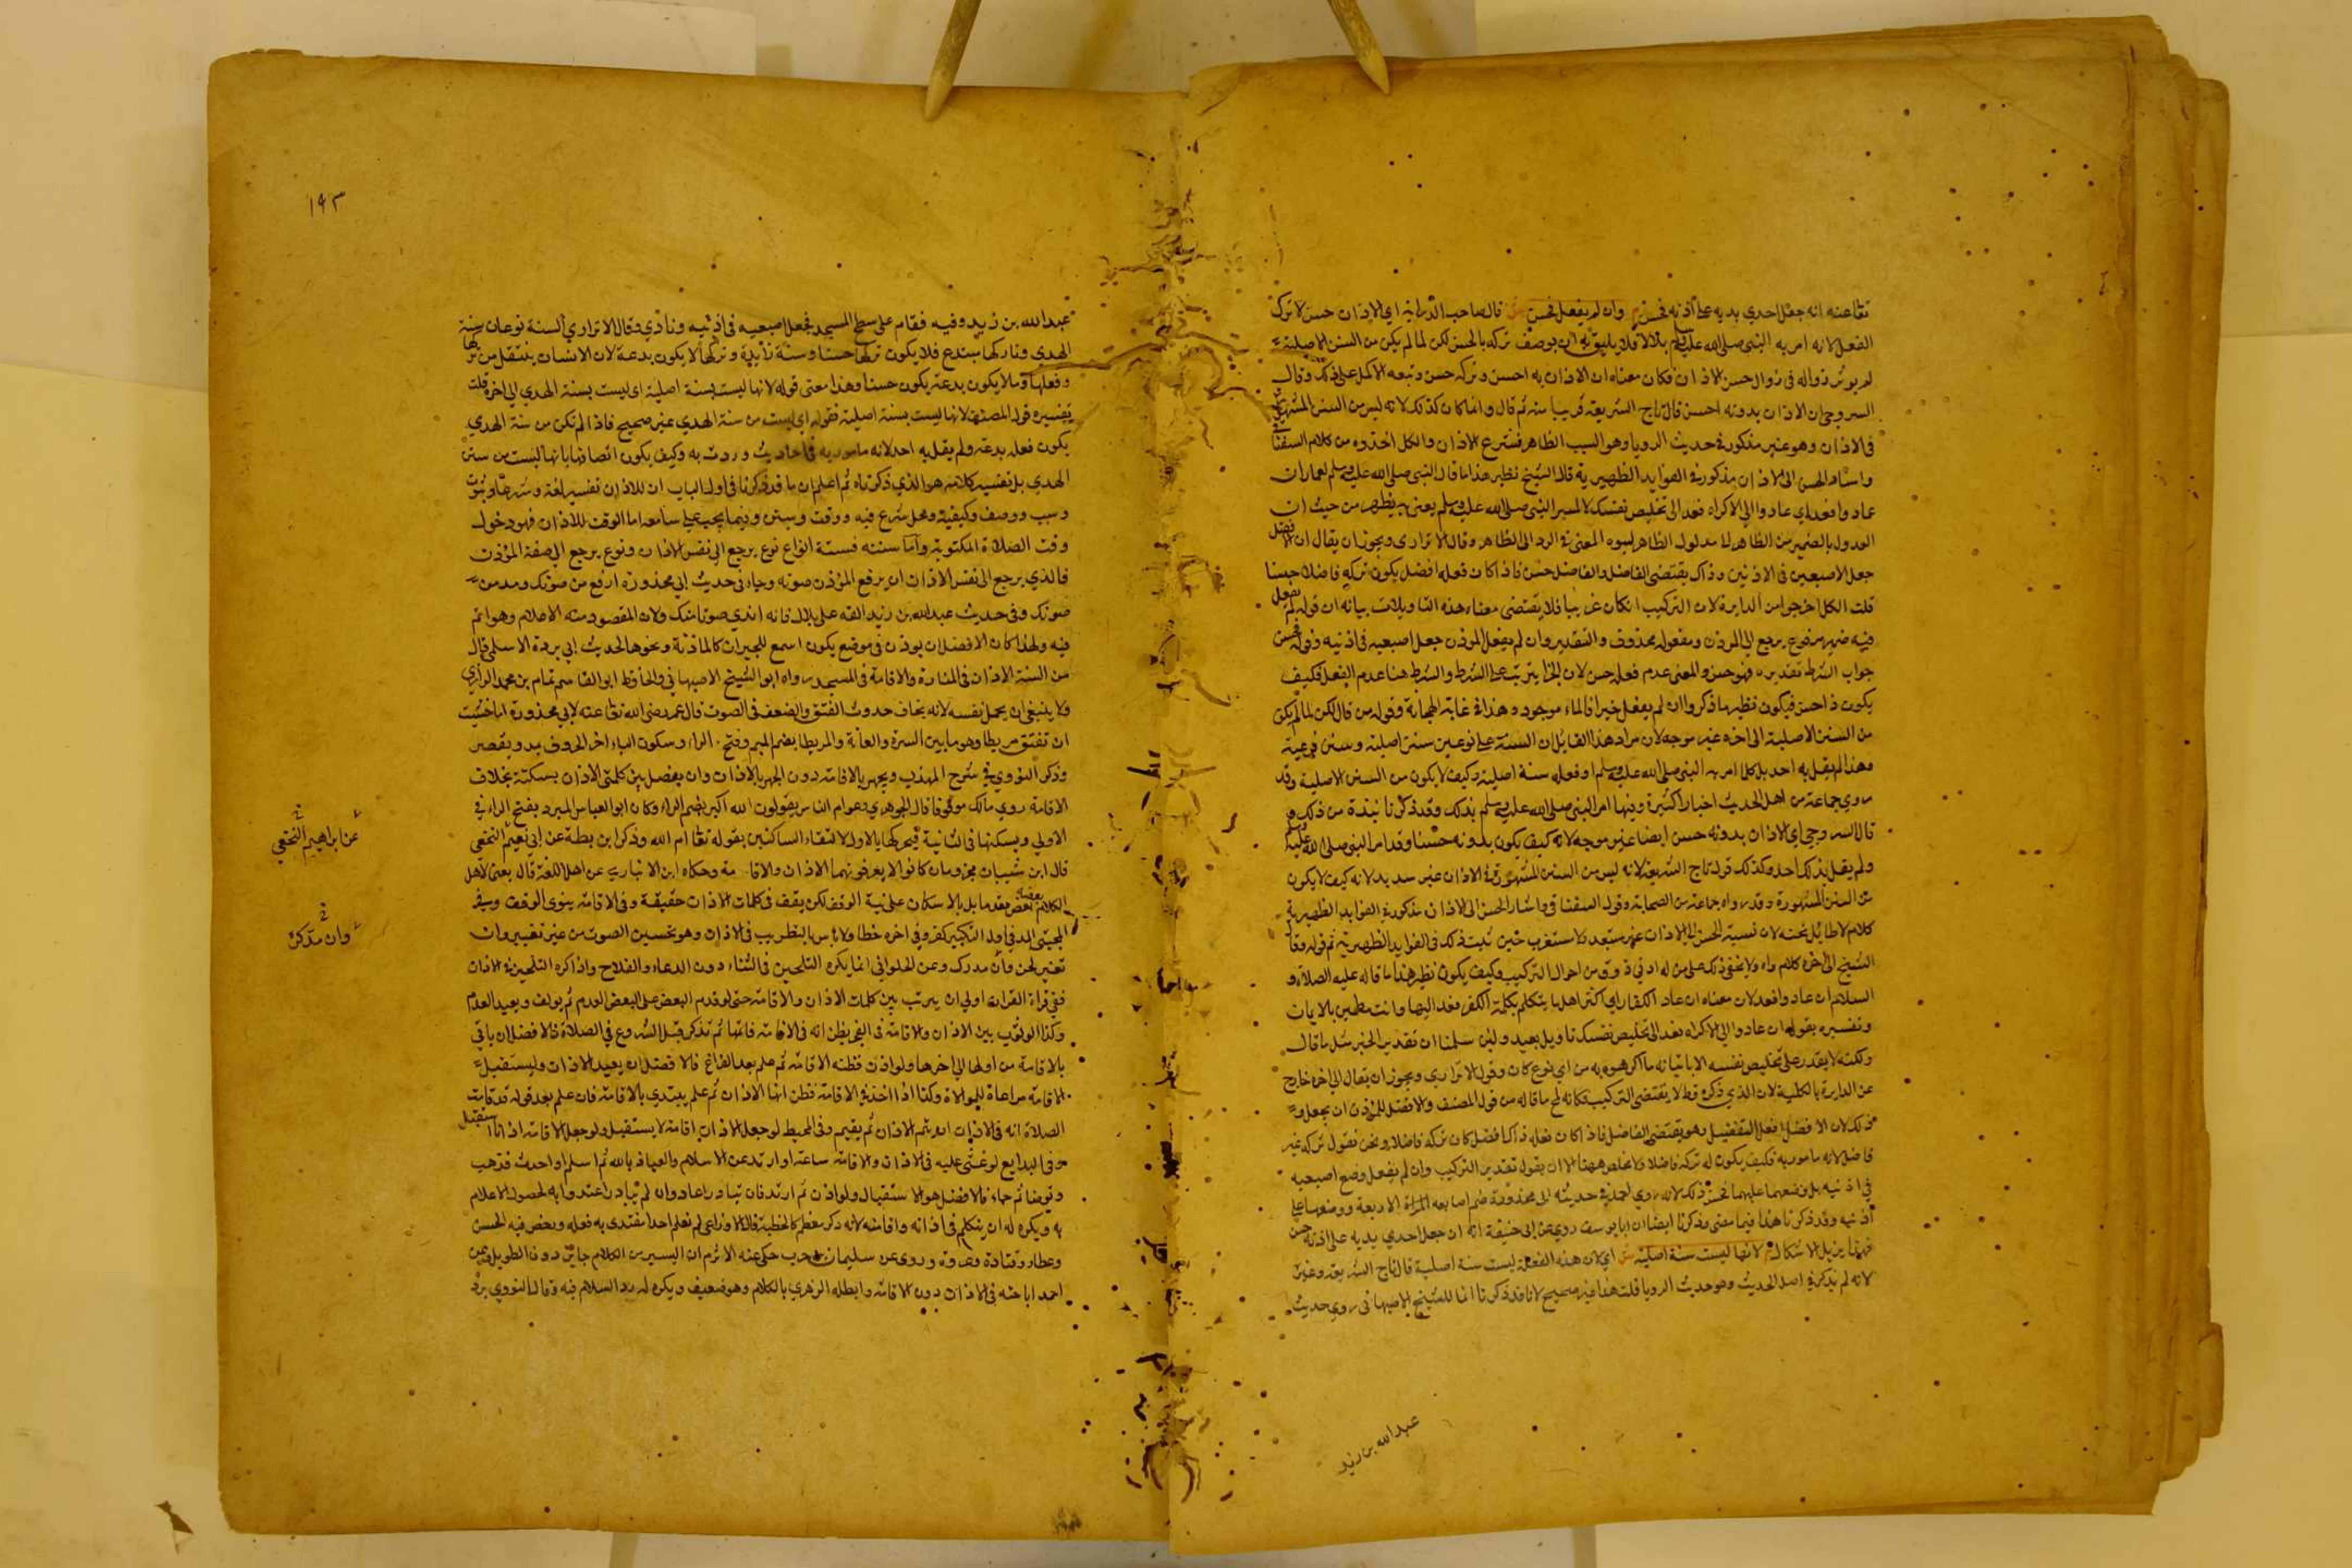 تعالى عنه انه جعل احدي يديه على اذنه فحسن م وان لم يفعل فحسن ش قال صاحب الدراية اي الاذان حسن لا ترك
الفعل لانه امر به النبي صلى الله عليه وسلم بلالا فلا يليق به ان يوصف تركه بالحسن لكن لما لم يكن من السنن الاصلية
لم يوثر زواله في زوال حسن الاذان فكان معناه ان الاذان به احسن وتركه حسن وتبعه الاكمل على ذلك وقال
السروجي ان الاذان بدونه احسن قال تاج الشريعة قريبا منه ثم قال وانما كان كذلك لانه ليس من السنن المشهورة
في الاذان وهو غير مذكور في حديث الرويا وهو السبب الظاهر فشرع الاذان والكل اخذوه من كلام السغناقي
واسناد الحسن الى الاذان مذكور في الفوايد الظهيرية قال الشيخ نظير هذا ما قال النبي صلى الله عليه وسلم لعمار ان
عادوا فعد اي عادوا الي الاكراه فعد الى تخليص نفسك لا لسب النبي صلى الله عليه وسلم يعني يظهر من حيث ان
العدول بالضمير من الظاهر لا مدلول الظاهر لنبوه المعنى في الرد الى الظاهر وقال الاترارى ويجوز ان يقال ان افضل
جعل الاصبعين في الاذنين وذاك يقتضى الفاضل والفاضل حسن فاذا كان فعله افضل يكون تركه فاضلا حسنا
قلت الكل خرجوا من الدايرة لان التركيب ان كان غريبا فلا يقتضى معناه هذه التاويلات بيانه ان قوله لم يفعل
فيه ضمير مرفوع يرجع الي الموذن ومفعوله محذوف والتقدير وان لم يفعل الموذن جعل اصبعيه في اذنيه وقوله فحسن
جواب الشرط تقديره فهو حسن والمعنى عدم فعله حسن لان الجزا يترتب على الشرط والشرط هنا عدم الفعل فكيف
يكون ذا حسن فيكون نظير ما ذكروا ان لم يفعل خيرا فالماء موجود وهذا في غاية الجهارة وقوله من قال لكن لما لم يكن
من السنن الاصلية الى اخره غير موجه لان مراد هذا القايل ان السنة على نوعين سنن اصلية وسنن فرعية
وهذا لم يقل به احد بل كلما امر به النبي صلى الله عليه وسلم او فعله سنة اصلية وكيف لا يكون من السنن الاصلية وقد
روي جماعة من اهل الحديث اخبارا كثيرة وفيها امر النبي صلى الله عليه وسلم بذلك وقد ذكرنا نبذة من ذلك و
قال السروجي اي الاذان بدونه حسن ايضا غير موجه لانه كيف يكون بدونه حسنا وقد امر النبي صلى الله عليه
ولم يقل بذلك احد وكذلك قوله تاج الشريعة لانه ليس من السنن المشهورة في الاذان غير سديد لانه كيف لا يكون
من السنن المشهورة وقد رواه جماعة من الصحابة وقول السغناقي واشار الحسن الى الاذان مذكور في الفوايد الظهيرية
كلام لا طايل تحته لان نسبة الحسن الى الاذان غير مستبعد ولا مستغرب حتي يثبت ذلك في الفوايد الظهيرية ثم قوله وقال
الشيخ الى اخره كلام واه ولا يخفى ذلك على من له ادني ذوق من احوال التركيب وكيف يكون نظير هذا ما قاله عليه الصلاة و
السلام ان عادوا فعد لان معناه ان عاد الكفار اي اكثر اهل ما يتكلم بكلمة الكفر فعد اليها وانت مطمين بالايمان
وتفسيره بقوله ان عادوا الي الاكراه فعد الى تخليص نفسك تاويل بعيد ولئن سلمنا ان تقدير الخبر مثل ما قال
ولكنه لا يقدر على تخليص نفسه الا باتيانه ما اكره به من اي نوع كان وقول الاترارى ويجوز ان يقال الى اخره خارج
عن الدايرة بالكلية لان الذي ذكره قط لا يقتضى التركيب فكانه لمح ما قاله من قول المصنف والافضل للموذن ان يجعل و
ذلك لان الافضل افعل التفضيل وهو يقتضى الفاضل فاذا كان فعله ذاك افضل كان تركه فاضلا ونحن نقول تركه غير
فاضل لانه مامور به فكيف يكون له تركه فاضلا ولا تخلص ههنا الا ان يقول تقدير التركيب وان لم يفعل وضع اصبعيه
في اذنيه بل وضعهما عليهما فحسن ذلك لانه روي احمد في حديثه ابى محذورة ضم اصابعه الاربعة ووضعها على
اذنيه وقد ذكرنا هذا فيما مضى وذكرنا ايضا ان ابا يوسف روي عن ابى حنيفة انه ان جعل احدي يديه على اذنه حسن
فبهذا يزيل الاشكال م لانها ليست سنة اصلية ش اي لان هذه الفعلة ليست سنة اصلية قال تاج الشريعة وغيره
لانه لم يذكر في اصل الحديث وهو حديث الرويا قلت هذا غير صحيح لانا قد ذكرنا ان الشيخ الاصبهانى روي حديث
عبد الله بن زيد
١٩٣
عبد الله بن زيد وفيه فقام على سطح المسجد فجعل اصبعيه في اذنيه ونادي وقال الاتراري السنة نوعان سنة
الهدى وتاركها مبتدع فلا يكون تركها حسنا وسنة زايدة وتركها لا يكون بدعة لان الانسان ينتقل من تركها
وفعلها وما لا يكون بدعة يكون حسنا وهذا معنى قوله لانها ليست بسنة اصلية اى ليست بسنة الهدي الي اخره قلت
تفسيره قول المصنف لانها ليست بسنة اصلية بقوله اي ليست من سنة الهدي غير صحيح فاذا لم تكن من سنة الهدي
يكون فعله بدعة ولم يقل به احد لانه مامور به في احاديث وردت به وكيف يكون اتصافها بانها ليست من سنن
الهدي بل تفسير كلامه هو الذي ذكرناه ثم اعلم ان ما قد ذكرنا في اول الباب ان للاذان تفسير لغة وشرعا وثبوت
وسبب ووصف وكيفية ومحل شرع فيه ووقت وسنن وفيما يجب على سامعه اما الوقت للاذان فهو دخول
وقت الصلاة المكتوبة واما سننه فستة انواع نوع يرجع الى نفس الاذان ونوع يرجع الي صفة الموذن
فالذي يرجع الى نفس الاذان ان يرفع الموذن صوته وجاء فى حديث ابي محذورة ارفع من صوتك ومد من
صوتك وفي حديث عبد الله بن زيد القه على بلال فانه اندي صوتا منك ولان المقصود منه الاعلام وهو اتم
فيه ولهذا كان الافضل ان يوذن في موضع يكون اسمع للجيران كالماذنة ونحوها لحديث ابي بردة الاسلمي قال
من السنة الاذان في المنارة والاقامة في المسجد رواه ابو الشيخ الاصبهاني والحافظ ابو القاسم تمام بن محمد الرازي
ولا ينبغي ان يحمل نفسه لانه يخاف حدوث الفتق والضعف في الصوت قال عمر رضى الله تعالى عنه لابي محذورة اما خشيت
ان تفتق مريطا وهو ما بين السرة والعانة والمريطا بضم الميم وفتح الراء وسكون الياء اخر الحروف يمد ويقصر
وذكر النووي في شرح المهذب ويجهر بالاقامة دون الجهر بالاذان وان يفصل بين كلمتي الاذان بسكتة بخلاف
الاقامة روي مالك موقوفا قال الجوهري وعوام الناس يقولون الله اكبر بضم الراء وكان ابو العباس المبرد يفتح الراء في
الاولي ويسكنها في الثانية فيحركها بالاول لالتقاء الساكنين بقوله تعالى الم الله وذكر ابن بطة عن ابي نعيم النخعي
عن ابراهيم النخعي
قال ابن شيبان مجزومان كانوا لا يعرفونهما الاذان والاقامة وحكاه ابن الانباري عن اهل اللغة قال يعنى لاهل
الكلام بعضه بعد ما بل بالاسكان على نية الوقف لكن يقف في كلمات الاذان حقيقة وفي الاقامة ينوى الوقف وفي
المجتبى المد في اول التكبير كفر وفي اخره خطا ولا باس بالتطريب في الاذان وهو تحسين الصوت من غير تغيير وان
وان مدكر
تغير لحن وان مدرك وعن الحلواني انما يكره التلحين في الثناء دون الدعاء والفلاح واذا كره التلحين في الاذان
ففي قراة القران اولي ان يرتب بين كلمات الاذان والاقامة حتى لو قدم البعض على البعض المقدم ثم يولف ويعيد المقدم
وكذا الو ثوب بين الاذان والاقامة في الفجر يظن انه في الاقامة فاتمها ثم تذكر قبل الشروع في الصلاة فالافضل ان ياتي
بالاقامة من اولها الي اخرها ولو اذن فظنه الاقامة ثم علم بعد الفراغ فالافضل ان يعيد الاذان ويستقبل
الاقامة مراعاة للموالاة وكذا اذا اخذ في الاقامة فظن انها الاذان ثم علم يبتدي بالاقامة فان علم بعد قوله قد قامت
الصلاة انه في الاذان انه يتم الاذان ثم يقيم وفي المحيط لو جعل الاذان اقامة لا يستقبل ولو جعل الاقامة اذانا استقبل
وفي البدايع لو غشي عليه في الاذان والاقامة ساعة او ارتد عن الاسلام والعياذ بالله ثم اسلم او احدث فذهب
وتوضا ثم جاء فالافضل هو الاستقبال ولو اذن ثم ارتد فان تبادر اعاد وان لم يتبادر اعتدوا به لحصول الاعلام
به ويكره له ان يتكلم في اذانه واقامته لانه ذكر معظم كالخطبة قال الاوزاعي لم نعلم احدا مقتدى به فعله ورخص فيه الحسن
وعطاء وقتادة وعروة وروى عن سليمان بن حرب حكى عنه الاثرم ان اليسير من الكلام جايز دون الطويل وعن
احمد اباحته في الاذان دون الاقامة وابطله الزهري بالكلام وهو ضعيف ويكره له رد السلام فيه وقال النووي يرد